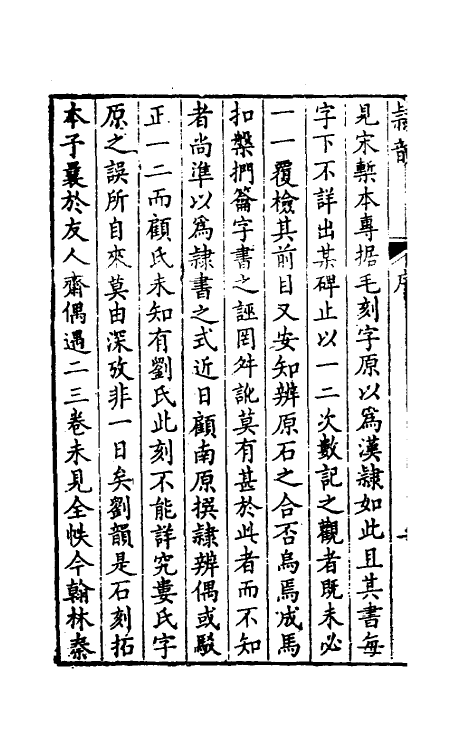 隸韻
序
見宋槧本專据毛刻字原以爲漢隸如此且其書每
字下不詳出某碑止以一二次數記之觀者既未必
一一覆檢其前目又安知辨原石之合否烏焉成馬
扣槃捫籥字書之誣罔舛訛莫有甚於此者而不知
者尚準以爲隷書之式近日顧南原撰隷辨偶或駁
正一二而顧氏未知有劉氏此刻不能詳究婁氏字
原之誤所自來莫由深攷非一日矣劉韻是石刻拓
本予曩於友人齋偶遇二三卷未見全帙今翰林秦